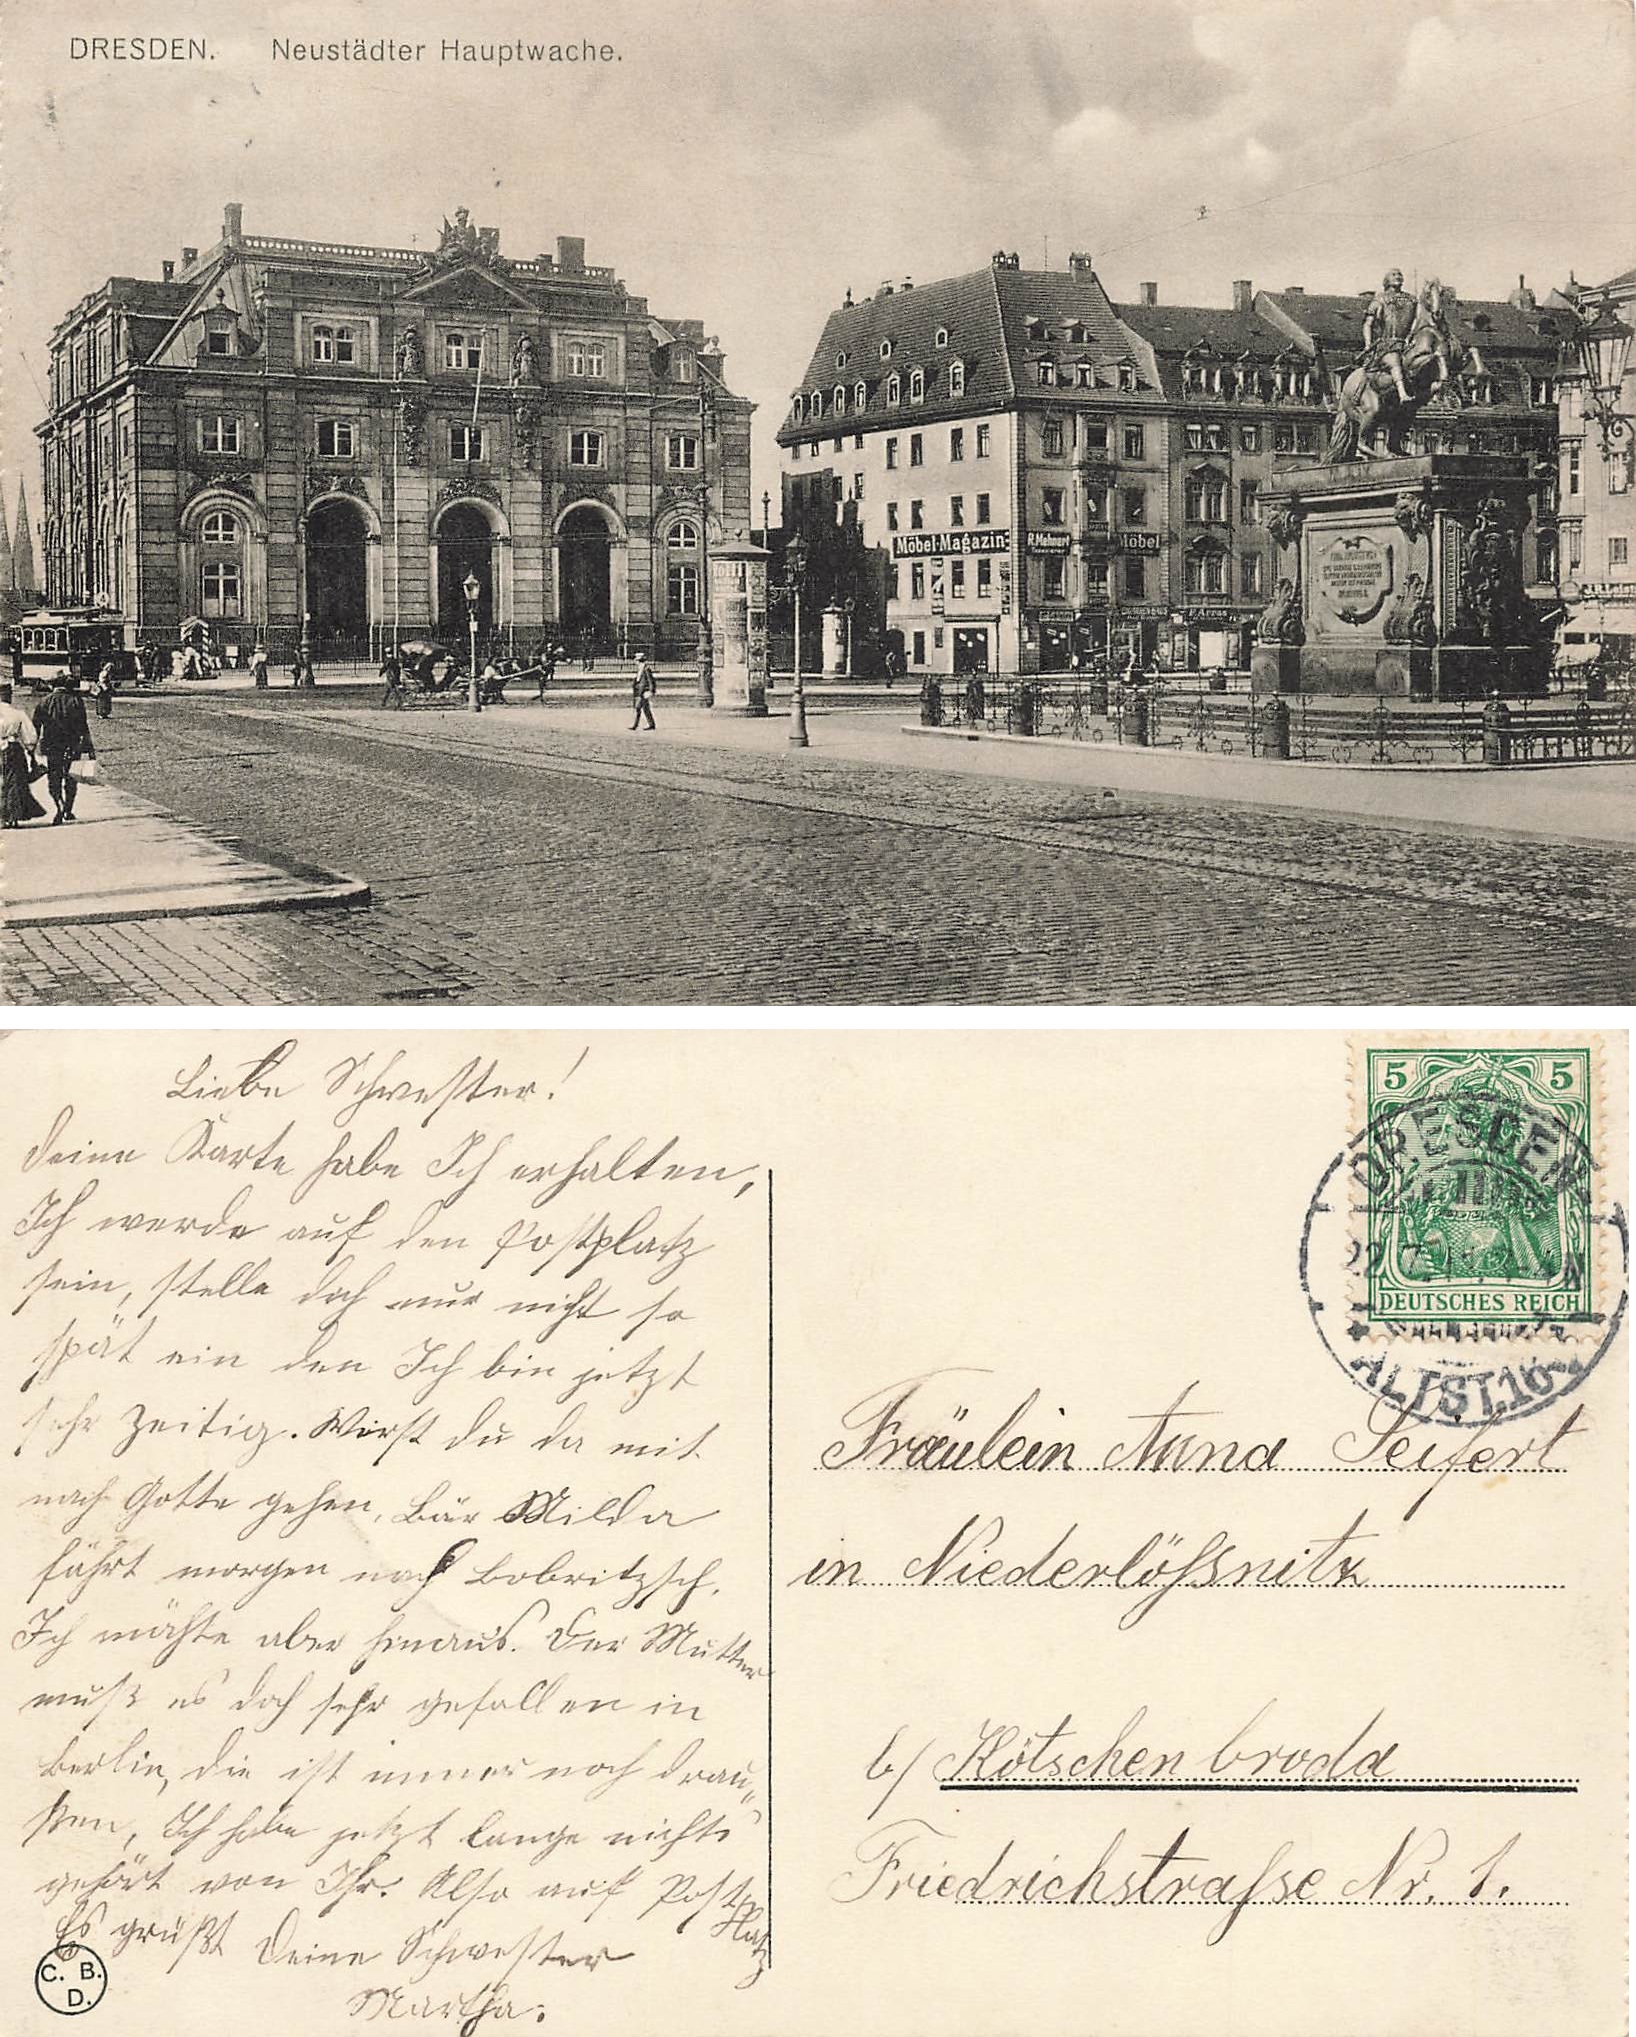 DRESDEN. Neustädter Hauptwache.
Möbel-Magazin
R. Mehnert
Möbel
Liebe Schwester!
Deine Karte habe Ich erhalten,
Ich werde auf den Postplatz
sein, stelle doch nur nicht so
spät ein den Ich bin jetzt
sehr zeitig. Wirst du da mit
nach Gotte gehen. Bär Milda
fährt morgen nach Bobritzsch.
Ich möchte aber hinaus. Der Mutter
muß es doch sehr gefallen in
Berlin, die ist immer noch drau„
ßen, Ich habe jetzt lange nichts
gehört von Ihr. Also auf Post
platz
Es grüßt Deine Schwester
Martha.
C. B.
D.
5 5
DEUTSCHES REICH
DRESDEN
ALTST. 16
Fräulein Anna Seifert
in Niederlößnitz
b/ Kötschenbroda
Friedrichstraße Nr. 1.